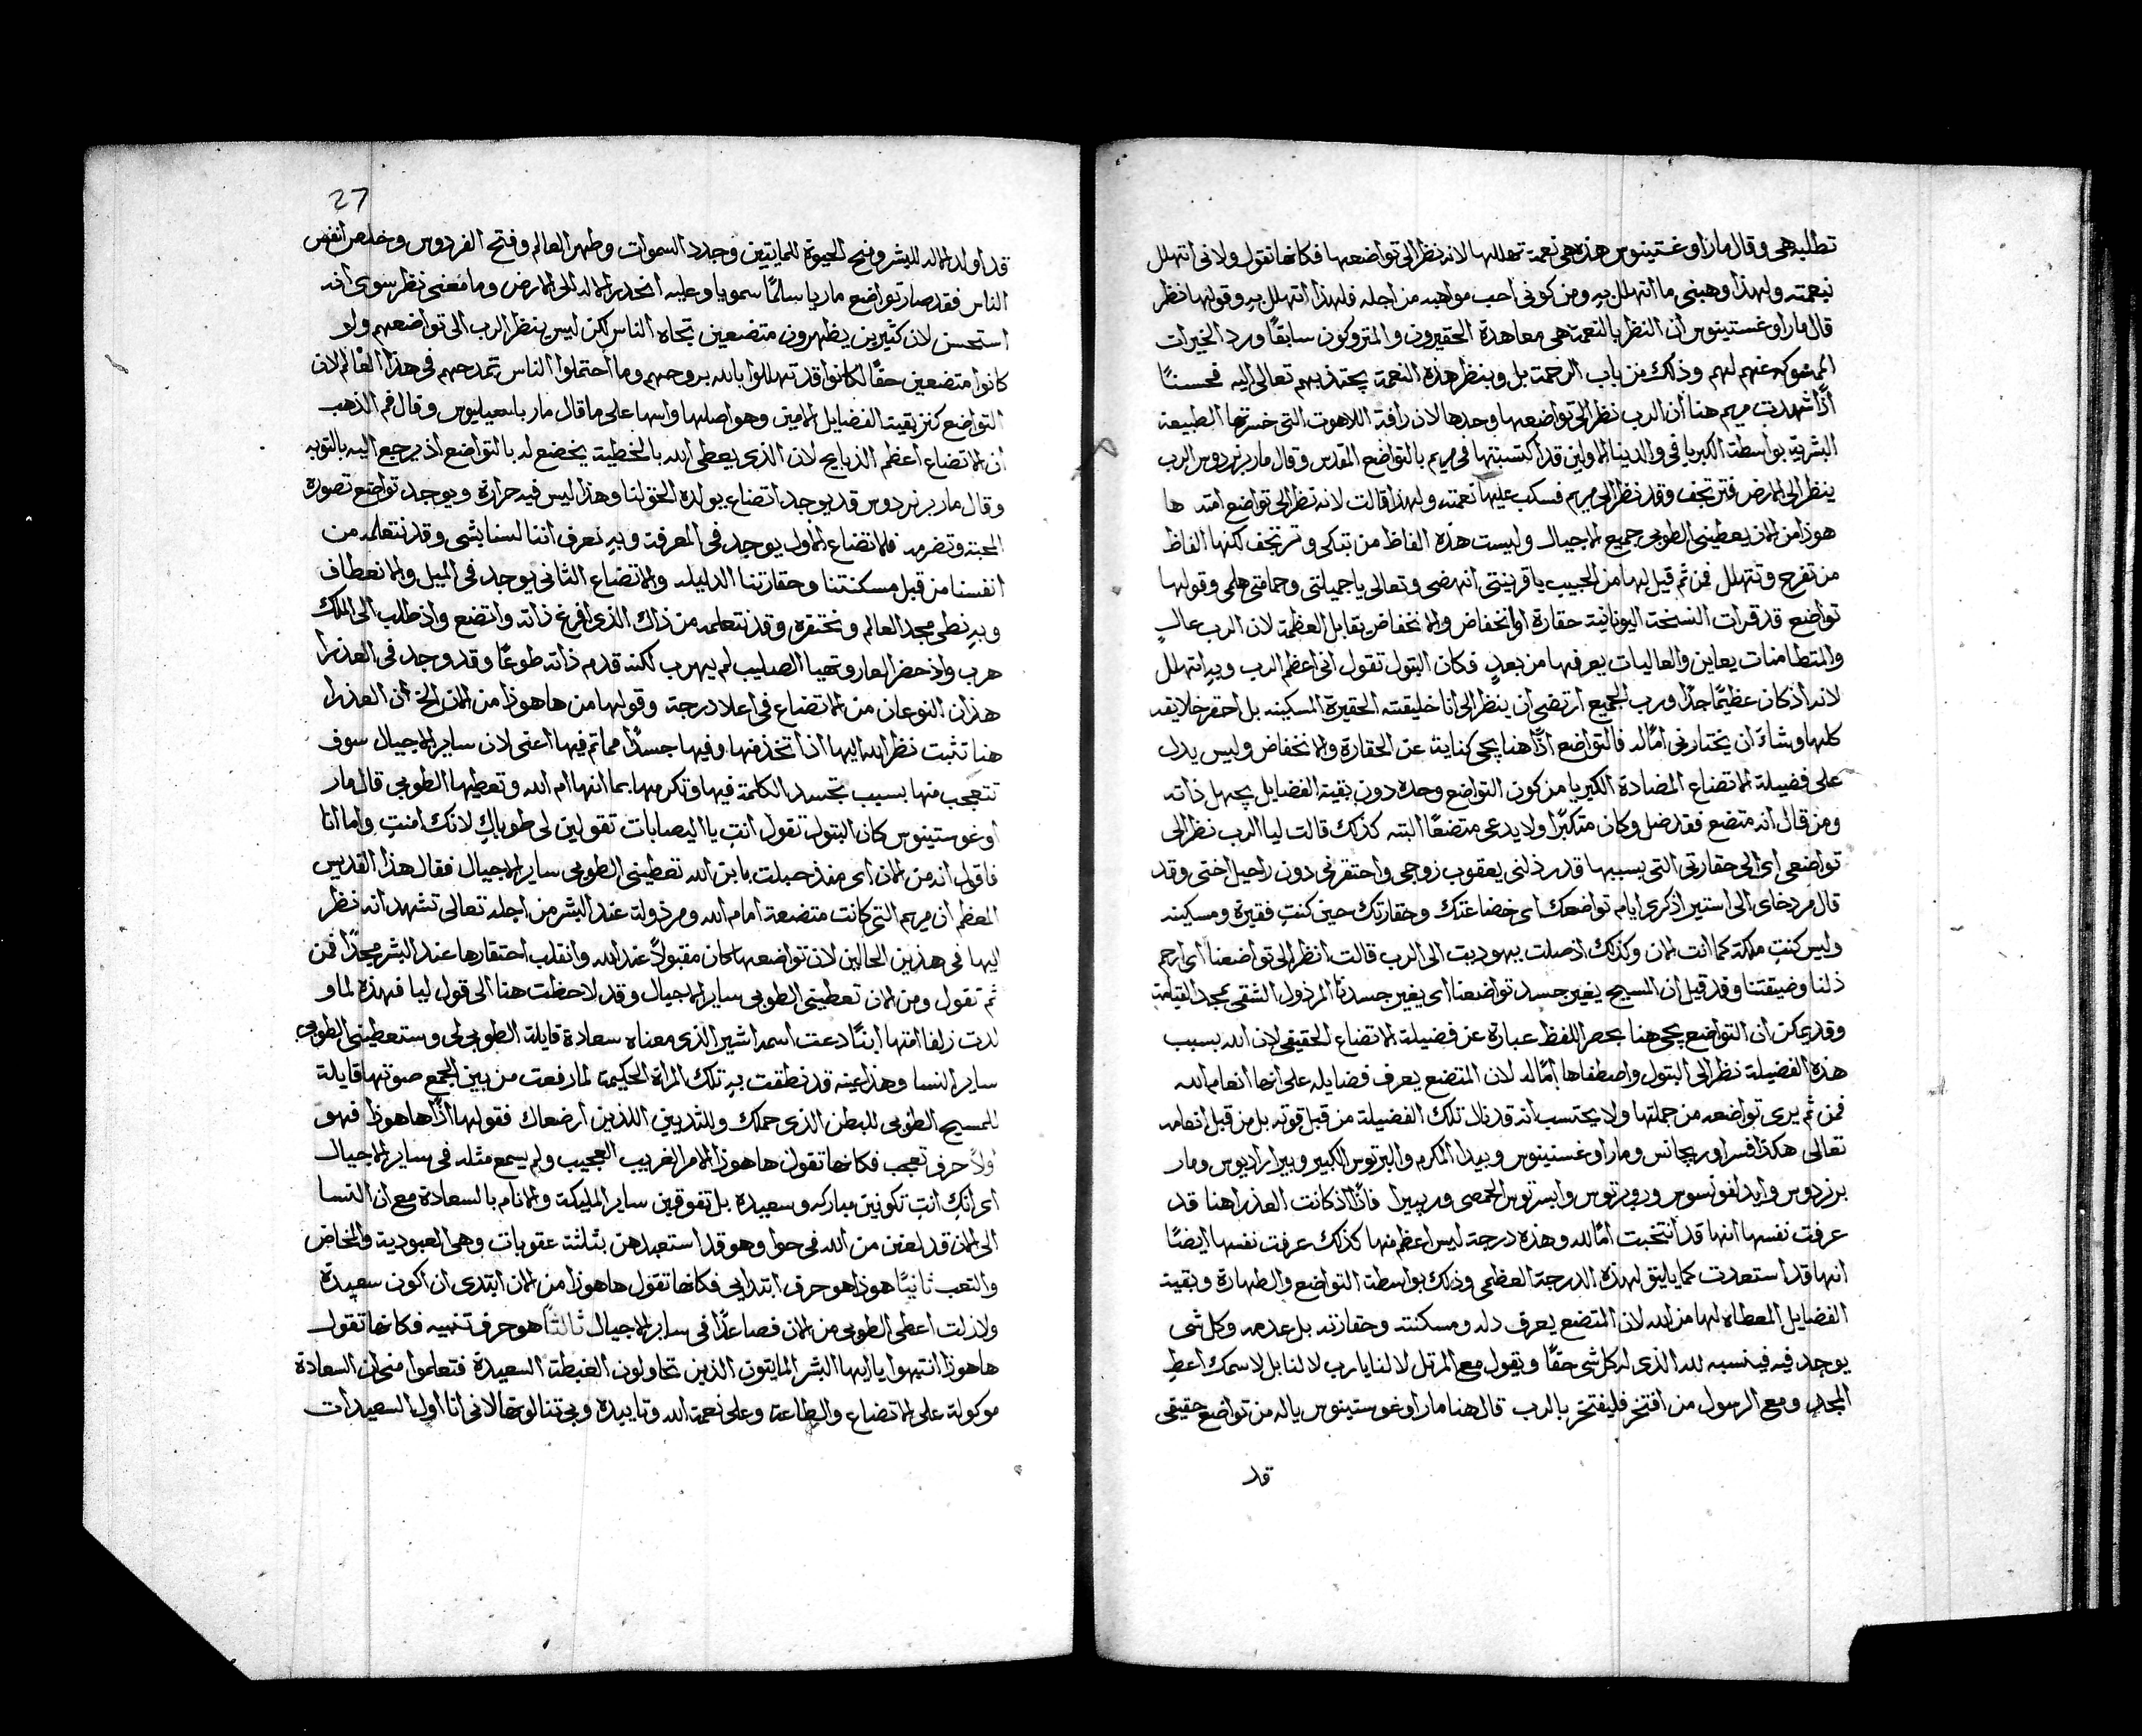 تطلبه هى وقال مار اوغستينوس هذه هى نعمة تهللها لانه نظر الى تواضعها فكانها تقول ولانى اتهلل
بنعمته ولهذا وهبنى ما اتهلل به ومن كونى احب مواهبه من اجله فلهذا اتهلل به وقولها نظر
قال مار اوغستينوس ان النظر بالنعمة هى معاهدة الحقيرون والمتروكون سابقًا ورد الخيرات
الممنوكه عنهم لهم وذلك من باب الرحمة بل وبنظر هذه النعمة يجتذبهم تعالى اليه فحسنًا
اذًا شهدت مريم هنا ان الرب نظر الى تواضعها وحدها لان رافة اللاهوت التى خسرتها الطبيعة
البشرية بواسطة الكبريا فى والدينا الاولين قد اكتسبتها فى مريم بالتواضع المقدس وقال مار برنردوس الرب
ينظر الى الارض فترتجف وقد نظر الى مريم فسكب عليها نعمته ولهذا قالت لانه نظر الى تواضع امته ها
هوذا من الان يعطينى الطوبى جميع الاجيال وليست هذه الفاظ من تبكى وترتجف لكنها الفاظ
من تفرح وتتهلل فمن ثم قيل لها من الحبيب يا قرينتى انهضى وتعالى يا جميلتى وحمامتى هلمى وقولها
تواضع قد قرات النسخة اليونانية حقارة او انخفاض والانخفاض يقابل العظمة لان الرب عالٍ
والمتطامنات يعاين والعاليات يعرفها من بعدٍ فكان البتول تقول انى اعظم الرب وبه اتهلل
لانه اذ كان عظيمًا جدًا ورب الجميع ارتضى ان ينظر الى انا خليقته الحقيرة المسكينه بل احقر خلايقه
كلها وشاء ان يختارنى امًا له فالتواضع اذًا هنا يجى كناية عن الحقارة والانخفاض وليس يدل
على فضيلة الاتضاع المضادة الكبريا من كون التواضع وحده دون بقية الفضايل يجهل ذاته
ومن قال انه متضع فقد ضل وكان متكبرًا ولا يدعى متضعًا البته كذلك قالت ليا الرب نظر الى
تواضعى اى الى حقارتى التى بسببها قد رذلنى يعقوب زوجى واحتقرنى دون راحيل اختى وقد
قال مردخاى الى استير اذكرى ايام تواضعك اى خضاعتك وحقارتك حين كنتِ فقيرة ومسكينه
وليس كنتِ ملكة كما انت الان وكذلك اذ صلت يهوديت الى الرب قالت انظر الى تواضعنا اى ارحم
ذلنا وضيقتنا وقد قيل ان المسيح يغير جسد تواضعنا اى يغير جسدنا المرذول الشقى بمجد القيامة
وقد يمكن ان التواضع يجى هنا بحصر اللفظ عبارة عن فضيلة الاتضاع الحقيقى لان الله بسبب
هذه الفضيلة نظر الى البتول واصطفاها امًا له لان المتضع يعرف فضايله على انها انعام الله
فمن ثم يرى تواضعه من جملتها ولا يحتسب انه قد نال تلك الفضيلة من قبل قوته بل من قبل انعامه
تعالى هكذا فسر اوريجانس ومار اوغستينوس وبيدا المكرم والبرتوس الكبير وبيرا راديوس ومار
برنردوس وايدلفونسوس وروبرتوس وابسرتوس الحمصى وريبيرا فاذًا اذ كانت العذرا هنا قد
عرفت نفسها انها قد انتخبت امًا لله وهذه درجة ليس اعظم منها كذلك عرفت نفسها ايضًا
انها قد استعدت كما يليق لهذه الدرجة العظمى وذلك بواسطة التواضع والطهارة وبقية
الفضايل المعطاه لها من الله لان المتضع يعرف ذله ومسكنته وحقارته بل عدمه وكل شى
يوجد فيه فينسبه لله الذى له كل شى حقًا ويقول مع المرتل لا لنا يا رب لا لنا بل لاسمك اعطِ
المجد ومع الرسول من افتخر فليفتخر بالرب قال هنا مار اوغوستينوس ياله من تواضع حقيقى
قد
27
قد اولد الاله للبشر ومنح الحيوة للمايتين وجدد السموات وطهر العالم وفتح الفردوس وخلص انفس
الناس فقد صار تواضع ماريا سلمًا سمويا وعليه انحدر الاله الى الارض وما معنى نظر سوى انه
استحسن لان كثيرين يظهرون متضعين تجاه الناس لكن ليس ينظر الرب الى تواضعهم ولو
كانوا متضعين حقًا لكانوا قد تهللوا بالله بروحهم وما احتملوا الناس تمدحهم فى هذا العالم لان
التواضع كنز بقية الفضايل الامين وهو اصلها واسها على ما قال مار باسيليوس وقال فم الذهب
ان الاتضاع اعظم الذبايح لان الذى يعطى الله بالخطية يخضع له بالتواضع اذ يرجع اليه بالتوبه
وقال مار برنردوس قد يوجد اتضاع يولده الحق لنا وهذا ليس فيه حرارة ويوجد تواضع تصوره
المحبة وتضرمه فالاتضاع الاول يوجد فى المعرفة وبه نعرف اننا لسنا بشى وقد نتعلمه من
انفسنا من قبل مسكنتنا وحقارتنا الذليله والاتضاع الثانى يوجد فى الميل والانعطاف
وبه نطى مجد العالم ونحتقره وقد نتعلمه من ذاك الذى افرغ ذاته واتضع واذ طلب الى الملك
هرب واذ حضر العار وتهيا الصليب لم يهرب لكنه قدم ذاته طوعًا وقد وجد فى العذرا
هذان النوعان من الاتضاع فى اعلا درجة وقولها من ها هوذا من الان الخ ان العذرا
هنا تثبت نظر الله اليها اذ اتخذ منها وفيها جسدًا مما تم فيها اعنى لان ساير الاجيال سوف
تتعجب منها بسبب تجسد الكلمة فيها وتكرمها بما انها ام الله وتعطيها الطوبى قال مار
اوغوستينوس كان البتول تقول انتِ يا اليصابات تقولين لى طوباكِ لانك امنتِ واما انا
فاقول انه من الان اى منذ حبلت بابن الله تعطينى الطوبى ساير الاجيال فقال هذا القديس
المعظم ان مريم التى كانت متضعة امام الله ومرذولة عند البشر من اجله تعالى تشهد انه نظر
اليها فى هذين الحالين لان تواضعها كان مقبولاً عند الله وانقلب احتقارها عند البشر مجدًا فمن
ثم تقول ومن الان تعطينى الطوبى ساير الاجيال وقد لاحظت هنا الى قول ليا فهذه لما و
لدت زلفا امتها ابنًا دعت اسمه اشير الذى معناه سعادة قايلة الطوبى لى وستعطينى الطوبى
ساير النسا وهذا عينه قد نطقت به تلك المراة الحكيمة لما رفعت من بين الجمع صوتها قايلة
للمسيح الطوبى للبطن الذى حملك وللثديين اللذين ارضعاك فقولها اذًا ها هوذا فهو
اولاً حرف تعجب فكانها تقول ها هوذا الامر الغريب العجيب ولم يسمع مثله فى ساير الاجيال
اى انكِ انتِ تكونين مباركه وسعيده بل تفوقين ساير المليكة والانام بالسعادة مع ان النسا
الى الان قد لعنن من الله فى حوا وهو قد استعبدهن بثلثة عقوبات وهى العبودية والمخاض
والتعب ثانيًا هوذا هو حرف ابتدايى فكانها تقول ها هوذا من الان ابتدى ان اكون سعيدة
ولازلت اعطى الطوبى من الان فصاعدًا فى ساير الاجيال ثالثًا هو حرف تنبيه فكانها تقول
ها هوذا انتبهوا يا ايها البشر المايتون الذين تحاولون الغبطة السعيدة فتعلموا منى ان السعادة
موكولة على الاتضاع والطاعة وعلى نعمة الله وتاييده وبى تنالوتها لانى انا اول السعيدات